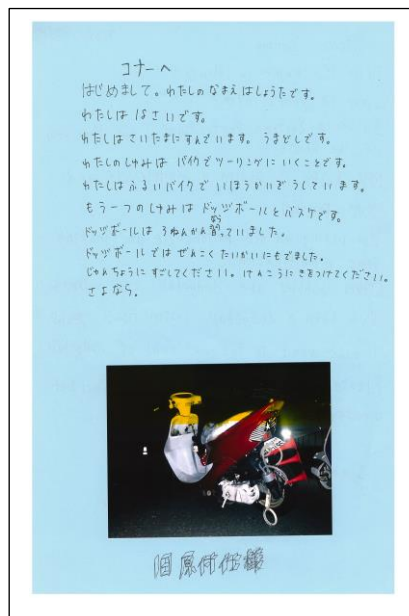 コナーへ
はじめまして。わたしのなまえはしょうたです。
わたしは 18さいです。
わたしはさいたまにすんでいます。うまどしです。
わたしのしゅみは バイクでツーリングにいくことです。
わたしはふるいバイクで いほうかいぞうしています。
もう一つのしゅみは ドッヂボールとバスケです。
ドッヂボールは 3ねんかん習っていました。
なら
ドッヂボールでは ぜんこくたいかいにもでました。
じゅんちょうに すごしてください。けんこうに きをつけてください。
さよなら。